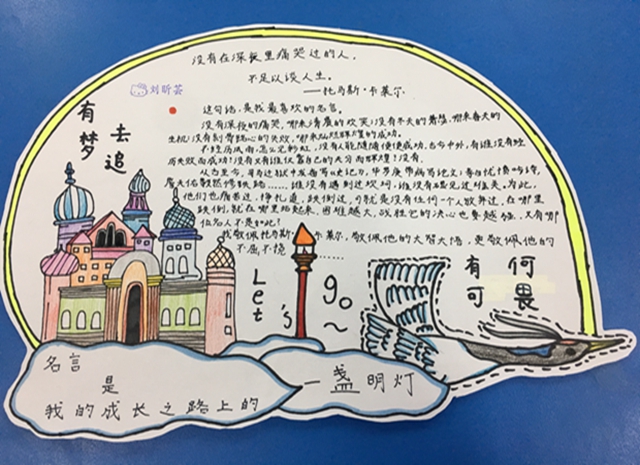 没有在深夜里痛哭过的人,
不足以谈人生。
——托马斯·卡莱尔
刘昕芸
有梦
去追
这句话,是我最喜欢的名言。
没有深夜的痛哭,哪来清晨的欢笑;没有冬天的萧瑟,哪来春天的
生机;没有刻骨铭心的失败,哪来灿烂辉煌的成功。
不经历风雨,怎么见彩虹,没有人能随随便便成功,古今中外,有谁没有经
历失败而成功!没有!又有谁仅靠自己的天分而辉煌!没有。
从古至今,司马迁狱中发奋写史记
谁没有遇到过坎坷,谁没有 为此,
他们也痛苦过,挣扎过,跌倒过,可就是没有任何一个人放弃过,在哪里
跌倒,就在哪里站起来,困难越大,战胜它的决心也要越强,又有哪
位名人不是如此!
我敬佩托马斯·卡莱尔,敬佩他的大智大悟,更敬佩他的
不屈不挠……
Let 's go~
有何
可畏
名言
是
我的成长之路上的
一盏明灯